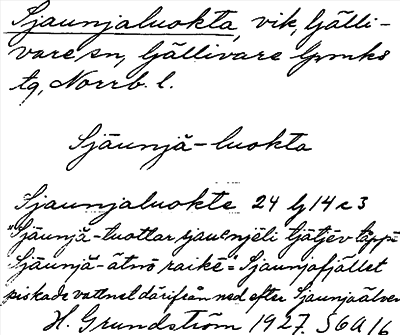 Sjaunjaluokta, vik, Gälli-
vare sn, Gällivare lpmks
tg, Norrb. l.
Sjäunjă-luokta
Sjaunjaluokte 24 G 14 c 3
"Sjäunjă-tuottar tjätjev
Sjäunjă-ätnō raikē" = Sjaunjafjället
piskade vattnet därifrån ned efter Sjaunjaälven
H. Grundström 1927. S 6A 16